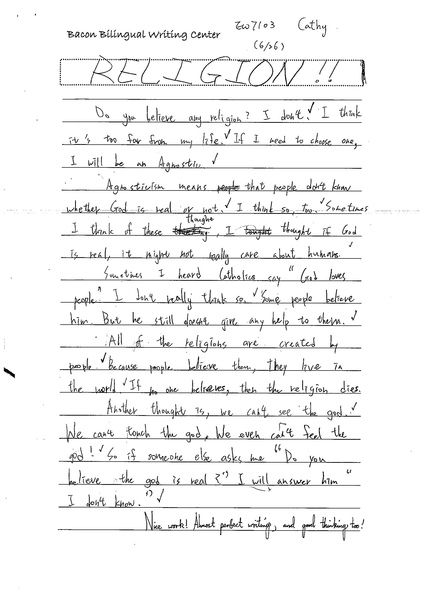 Bacon Bilingual Writing Center
EW7103 Cathy
(6/26)
RELIGION!!
Do you believe any religion? I don't. I think
it's too far from my life. If I need to choose one,
I will be an Agnostic.
Agnosticism means people that people don't know
whether God is real or not. I think so, too. Sometimes
thoughts
I think of these, I thought if God
is real, it might not really care about humans.
Sometimes I heard Catholics say "God loves
people." I don't really think so. Some people believe
him. But he still doesn't give any help to them.
All of the religions are created by
people. Because people believe them, they live in
the world. If no one believes, then the religion dies.
Another thought is, we can't see the god.
We can't touch the god, We even can't feel the
god! So if someone else asks me "Do you
believe the god is real?") I will answer him "
I don't know.")
Nice work! Almost perfect writing, and good thinking too!